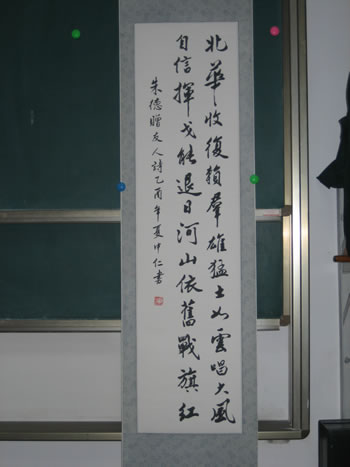 北华收復賴羣雄猛士如雲唱大風
自信揮戈能退日河山依舊戰旗紅
朱德贈友人詩乙酉年夏中仁書